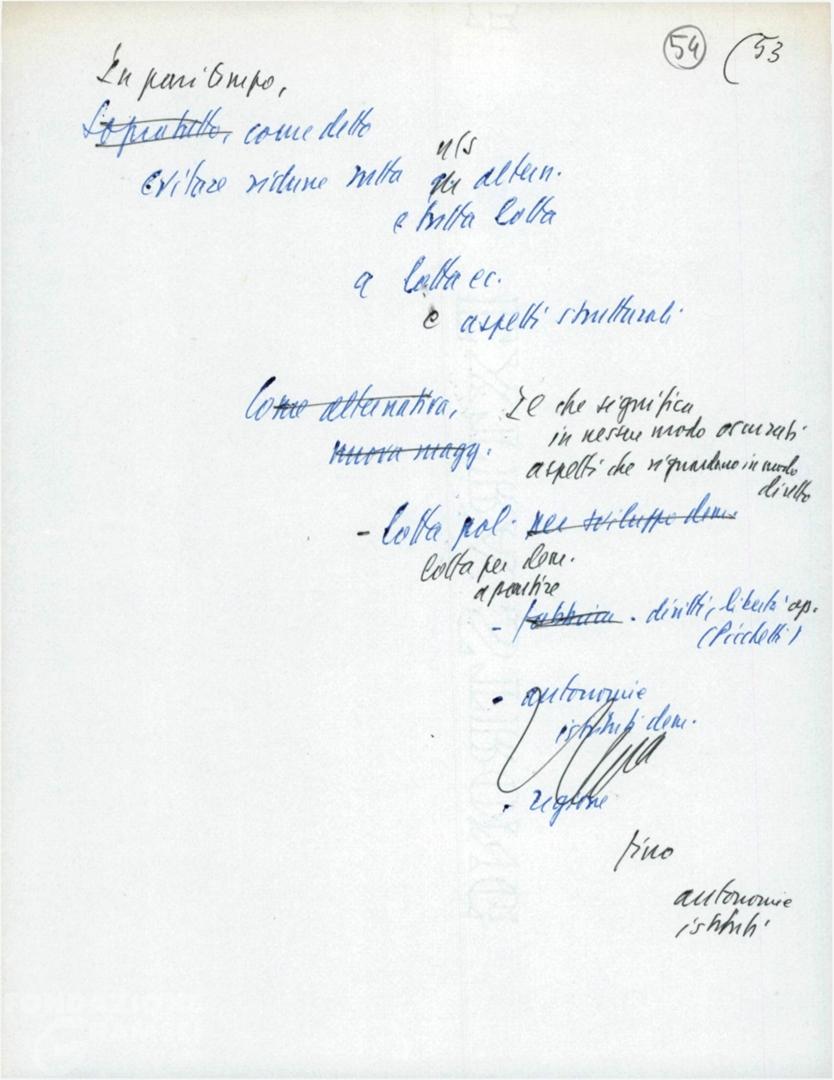 54 (53
In pari tempo,
Sopratutto, come detto
evitare ridurre tutta ns altern.
e tutta lotta
a lotta ec.
e aspetti strutturali
Come alternativa,
nuova magg.
Il che significa
in nessun modo oscurati
aspetti che riguardano in modo
diretto
- lotta pol. per sviluppo dem.
lotta per dem.
a partire
- fabbrica - diritti, libertà op.
(Picchetti)
- autonomie
istituti dem.
- regione
fino
autonomie
istituti
FONDAZIONE
GRAMSCI